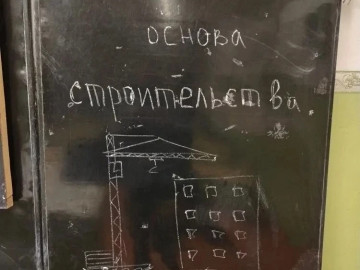 основа
строительства.